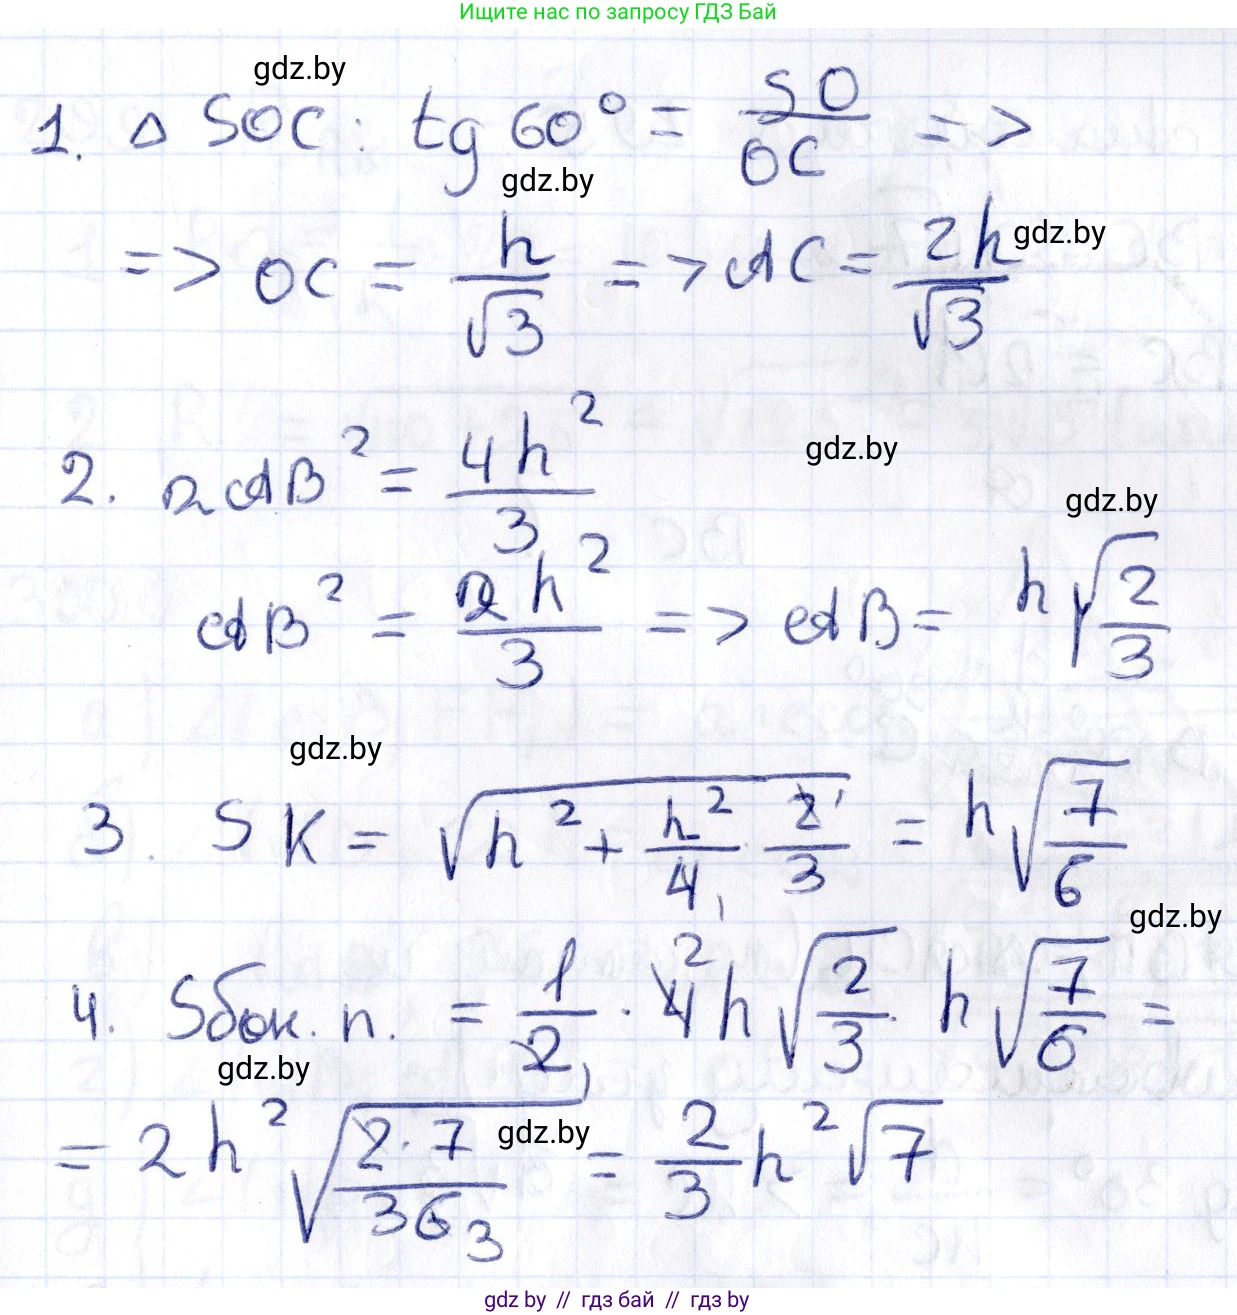 Ищите нас по запросу ГДЗ Бай
gdz.by
1. △ SOC: tg 60° = SO/OC =>
gdz.by
=> OC = h/√3 => AC = 2h/√3
gdz.by
2. 2AB² = 4h²/3
gdz.by
gdz.by
AB² = 2h²/3 => AB = h√(2/3)
gdz.by
3. SK = √(h² + h²/4 · 2/3) = h√(7/6)
gdz.by
4. Sбок. п. = 1/2 · 4 2 h√(2/3) · h√(7/6) =
gdz.by
= 2h²√(2·7/3·6 3) = 2/3 h²√7
gdz.by
gdz.by // гдз бай // gdz.by